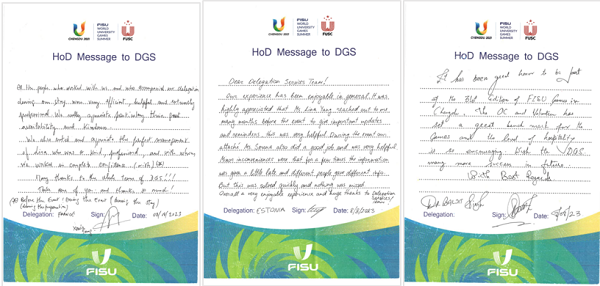 CHENGDU 2021
FISU
WORLD
UNIVERSITY
GAMES
SUMMER
FUSC
HoD Message to DGS
All the people who worked with us and who accompanied our delegation
during our stay were very efficient, helpful and extremely
professional. We really appreciate
hospitality and kindness.
We also noted and appreciate the perfect arrangement
Many thanks to the whole team of DGS!!!
Take care of you and thanks so much!
Delegation: Sign: Date:
FISU
CHENGDU 2021
FISU
WORLD
UNIVERSITY
GAMES
SUMMER
FUSC
HoD Message to DGS
Dear Delegation Services Team!
Our experience has been enjoyable in general. It was
highly appreciated that Ms. Lina Yang reached out to me
many months before the event to give important updates
and reminders, this was very helpful. During the event our
attaché Ms. also did a good job and was very helpful.
Minor inconveniences were that for a few times the information
was given a little late and different people gave different info.
But this was solved quickly and nothing was missed.
Overall a very enjoyable experience and huge thanks to Delegation
Services
Delegation: ESTONIA Sign: Date:
FISU
CHENGDU 2021
FISU
WORLD
UNIVERSITY
GAMES
SUMMER
FUSC
HoD Message to DGS
It has been great honor to be part
of the 31st edition of FISU Games in
Chengdu. The OC and Volunteers have
set a great bench mark for the
Games and the level of hospitality
is so encouraging. Wish the DGS
many more success in future.
With Best Regards
Delegation: Sign: Date:
FISU